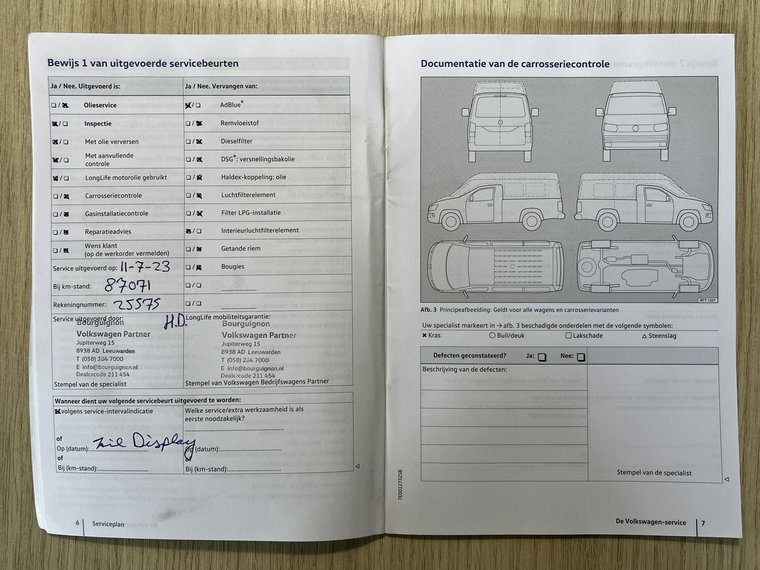 Bewijs 1 van uitgevoerde servicebeurten
Ja / Nee. Uitgevoerd is:
Olieservice
Inspectie
Met olie verversen
Met aanvullende
controle
LongLife motorolie gebruikt
Carrosseriecontrole
Gasinstallatiecontrole
Reparatieadvies
Wens klant
(op de werkorder vermelden)
Service uitgevoerd op: 11-7-23
Bij km-stand: 87071
Rekeningnummer: 25575
Ja / Nee. Vervangen van:
AdBlue®
Remvloeistof
Dieselfilter
DSG®: versnellingsbakolie
Haldex-koppeling: olie
Luchtfilterelement
Filter LPG-installatie
Interieurluchtfilterelement
Getande riem
Bougies
Service uitgevoerd door: H.D.
Bourguignon
Volkswagen Partner
Jupiterweg 15
8938 AD Leeuwarden
T (058) 284 7000
E info@bourguignon.nl
Dealercode 211 454
Stempel van de specialist
LongLife mobiliteitsgarantie:
Bourguignon
Volkswagen Partner
Jupiterweg 15
8938 AD Leeuwarden
T (058) 284 7000
E info@bourguignon.nl
Dealercode 211 454
Stempel van Volkswagen Bedrijfswagens Partner
Wanneer dient uw volgende servicebeurt uitgevoerd te worden:
volgens service-intervalindicatie
of
Op (datum): zie Display
of
Bij (km-stand):
Welke service/extra werkzaamheid is als
eerste noodzakelijk?
Op (datum):
of
Bij (km-stand):
6 Serviceplan
Documentatie van de carrosseriecontrole
Afb. 3 Principeafbeelding: Geldt voor alle wagens en carrosserievarianten
Uw specialist markeert in → afb. 3 beschadigde onderdelen met de volgende symbolen:
Kras Buil/deuk Lakschade Steenslag
Defecten geconstateerd? Ja: Nee:
Beschrijving van de defecten:
Stempel van de specialist
De Volkswagen-service 7